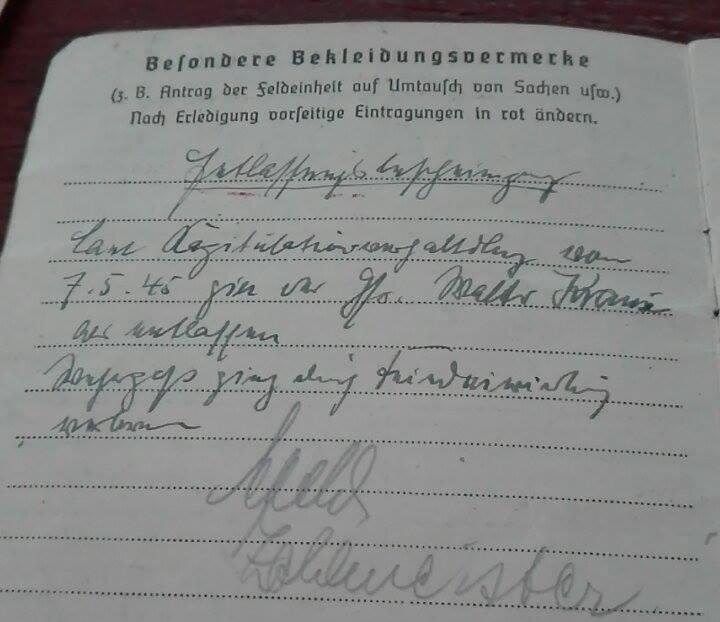 Besondere Bekleidungsvermerke
(z. B. Antrag der Feldeinheit auf Umtausch von Sachen usw.)
Nach Erledigung vorseitige Eintragungen in rot ändern.
Entlassungsbescheinigung
Laut Kapitulationsverhandlung vom
7.5.45 der Gfr. Walter
entlassen
Wehrpaß ging durch Feindeinwirkung
verloren
Zahlmeister